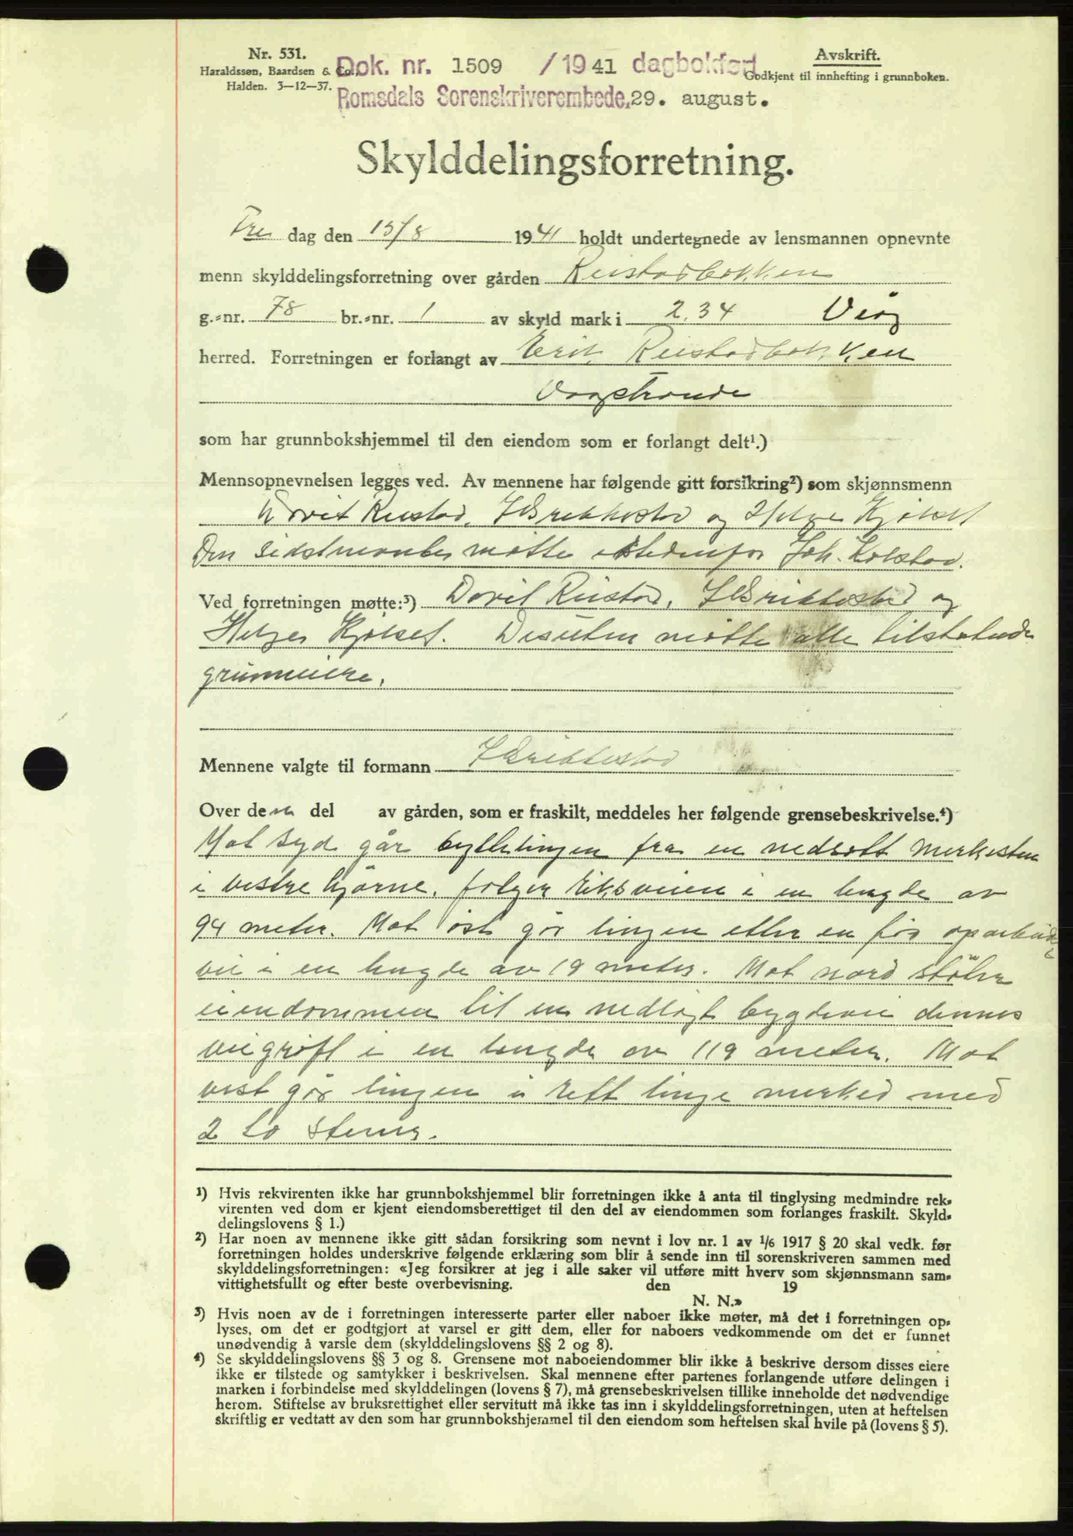 Nr. 531.
Haraldssen, Baardsen & Co.
Halden. 3—12—37.
Dok. nr. 1509 /1941 dagbokført
Romsdals Sorenskriverembede, 29. august.
Avskrift.
Godkjent til innhefting i grunnboken.
Skylddelingsforretning.
Fre dag den 15/8 1941 holdt undertegnede av lensmannen opnevnte
menn skylddelingsforretning over gården Reistadbakken
g.-nr. 78 br.-nr. 1 av skyld mark i 2.34 Veøy
herred. Forretningen er forlangt av Erik Reistadbakken
Vaagstrande
som har grunnbokshjemmel til den eiendom som er forlangt delt¹.)
Mennsopnevnelsen legges ved. Av mennene har følgende gitt forsikring²) som skjønnsmenn
Reistad, og Helge Kjølset
Den sidstnevnte møtte istedenfor Joh. Kolstad.
Ved forretningen møtte:³) Reistad, og
Helge Kjølset. Desuten møtte alle tilstøtende
grunneiere.
Mennene valgte til formann
Over den del av gården, som er fraskilt, meddeles her følgende grensebeskrivelse.⁴)
Mot syd går byttelingen fra en nedsatt merkesten
i vestre hjørne, følger riksveien i en lengde av
94 meter. Mot øst går lingen etter en før oparbeidet
vei i en lengde av 19 meter. Mot nord støter
eiendommen til en nedlagt bygdevei dennes
veigrøft i en lengde av 119 meter. Mot
vest går lingen i rett linje merked med
2 to stener.
¹) Hvis rekvirenten ikke har grunnbokshjemmel blir forretningen ikke å anta til tinglysing medmindre rek-
virenten ved dom er kjent eiendomsberettiget til den del av eiendommen som forlanges fraskilt. Skyld-
delingslovens § 1.)
²) Har noen av mennene ikke gitt sådan forsikring som nevnt i lov nr. 1 av 1/6 1917 § 20 skal vedk. før
forretningen holdes underskrive følgende erklæring som blir å sende inn til sorenskriveren sammen med
skylddelingsforretningen: «Jeg forsikrer at jeg i alle saker vil utføre mitt hverv som skjønnsmann sam-
vittighetsfullt og efter beste overbevisning. den 19
N. N.»
³) Hvis noen av de i forretningen interesserte parter eller naboer ikke møter, må det i forretningen op-
lyses, om det er godtgjort at varsel er gitt dem, eller for naboers vedkommende om det er funnet
unødvendig å varsle dem (skylddelingslovens §§ 2 og 8).
⁴) Se skylddelingslovens §§ 3 og 8. Grensene mot naboeiendommer blir ikke å beskrive dersom disses eiere
ikke er tilstede og samtykker i beskrivelsen. Skal mennene efter partenes forlangende utføre delingen i
marken i forbindelse med skylddelingen (lovens § 7), må grensebeskrivelsen tillike inneholde det nødvendige
herom. Stiftelse av bruksrettighet eller servitutt må ikke tas inn i skylddelingsforretningen, uten at heftelsen
skriftlig er vedtatt av den som har grunnbokshjemmel til den eiendom som heftelsen skal hvile på (lovens § 5).